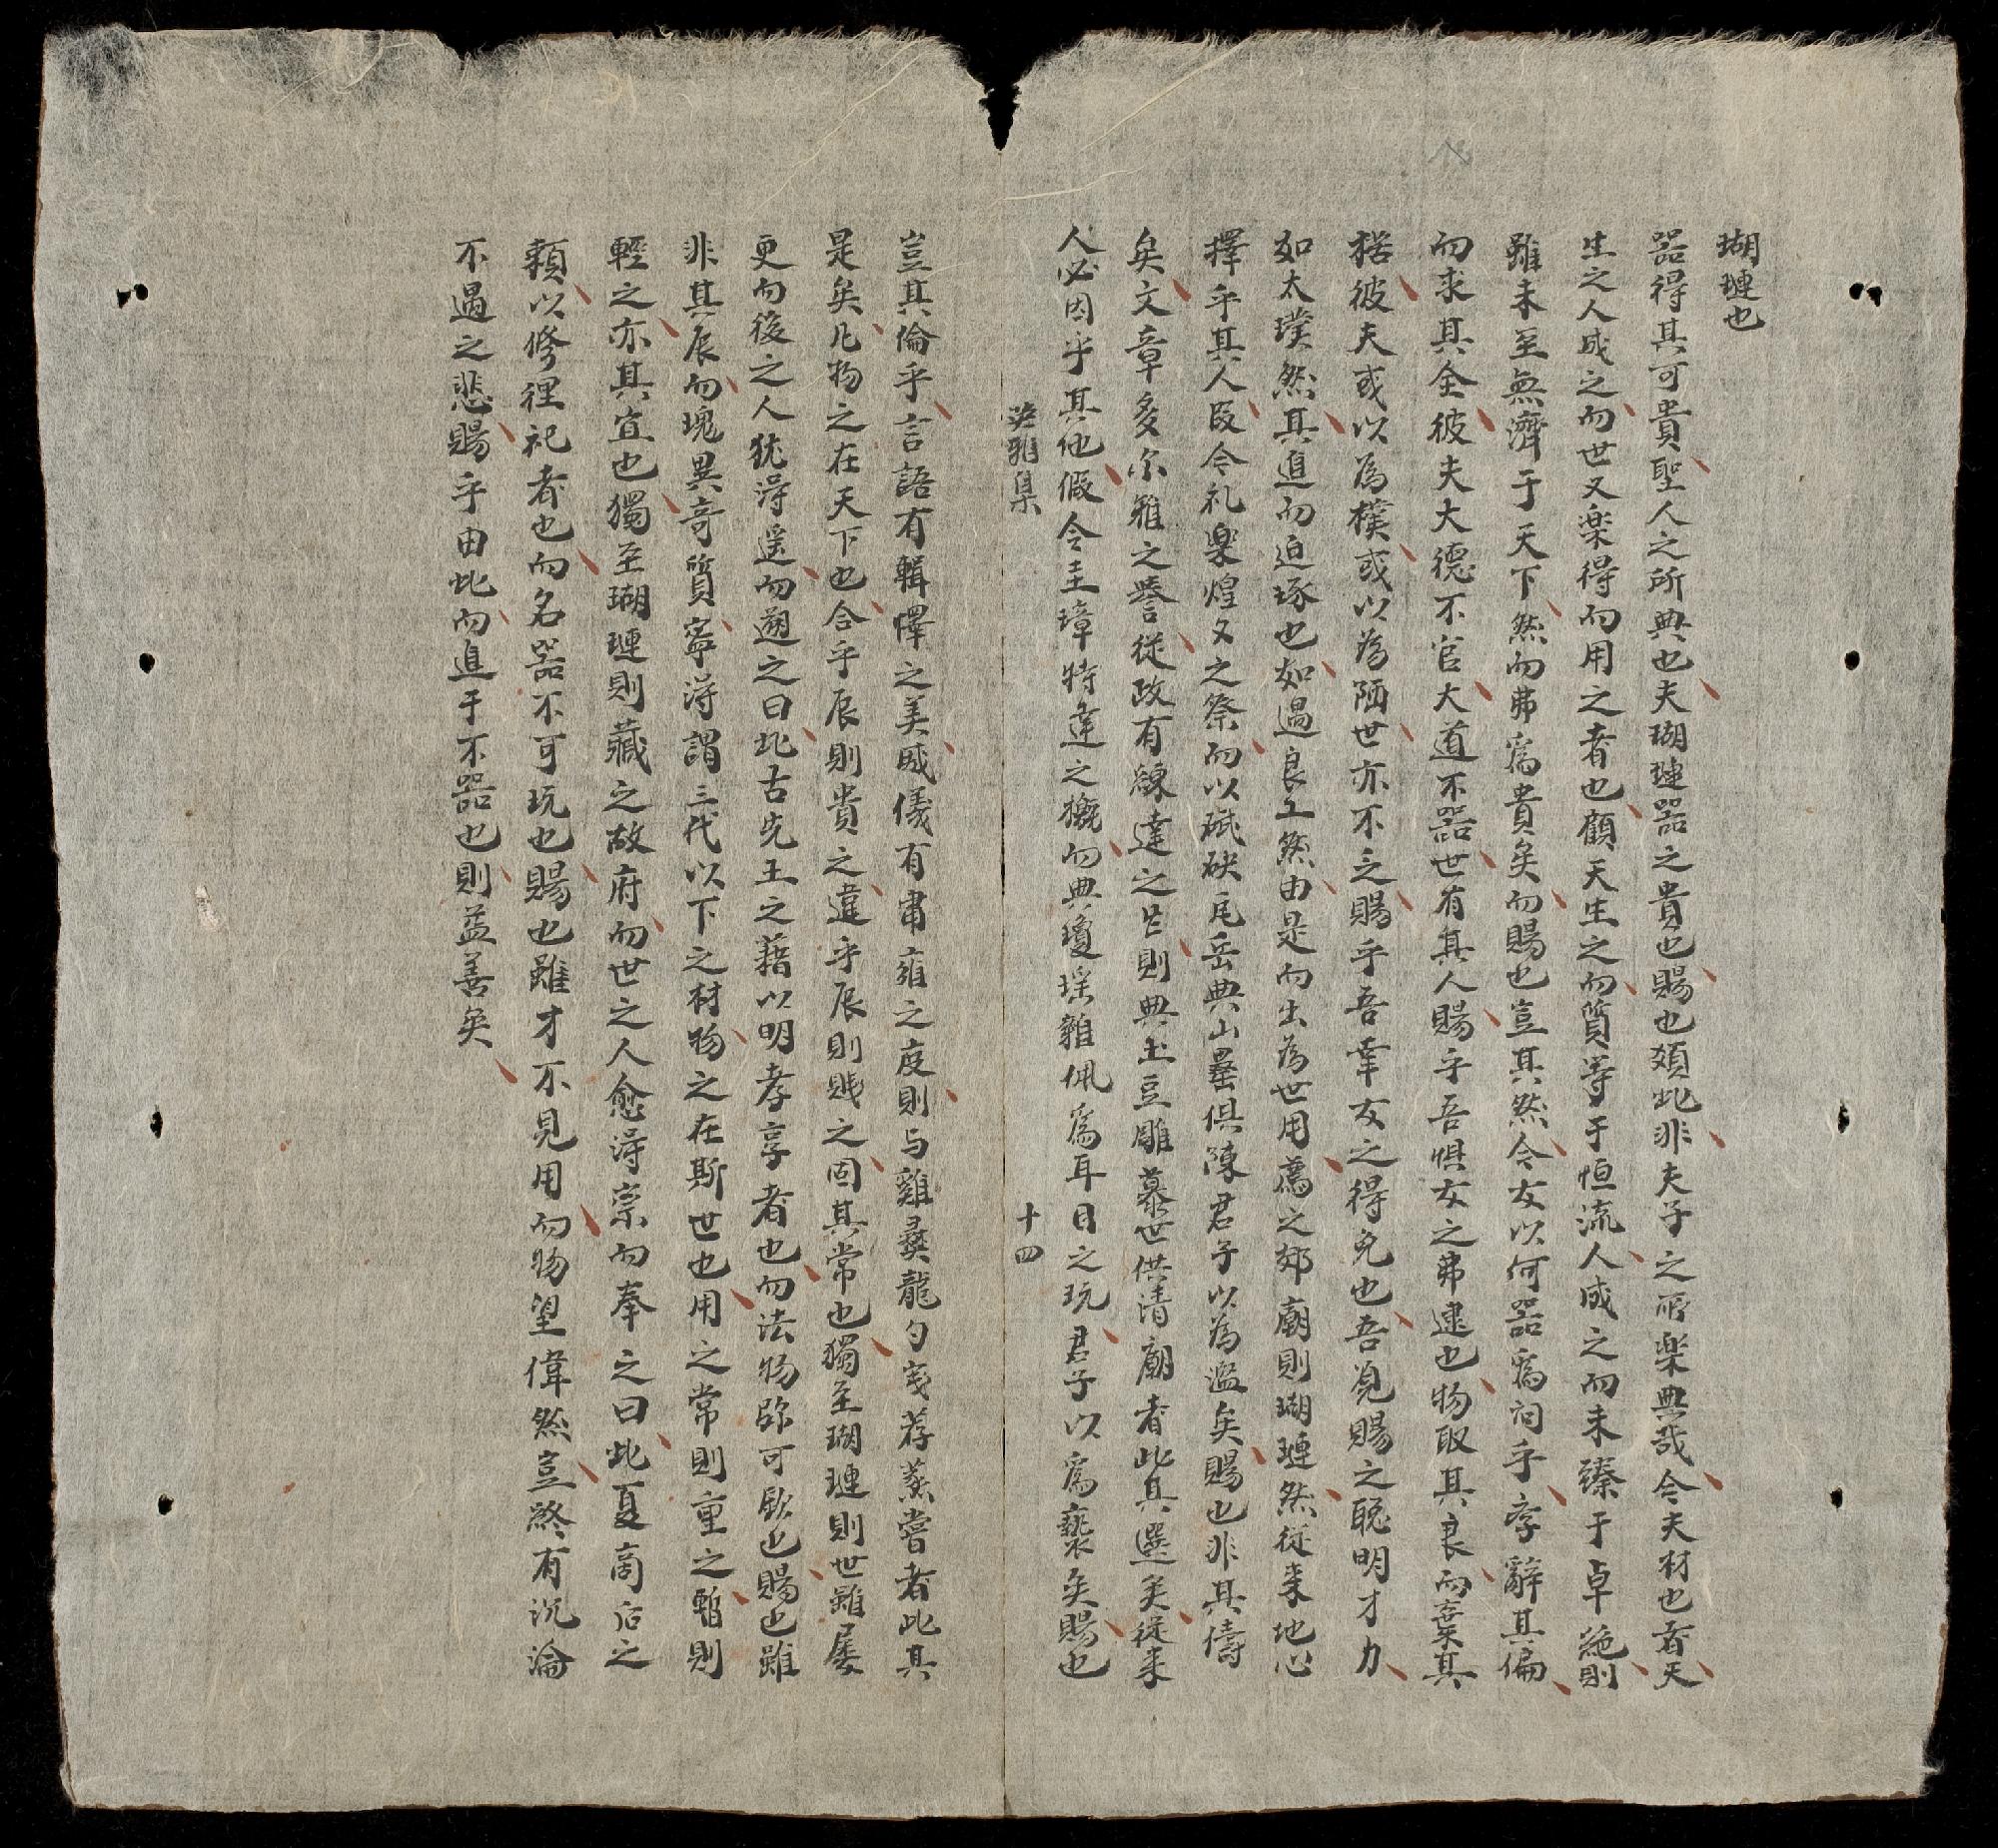 瑚璉也
器得其可貴聖人之所與也夫瑚璉器之貴也賜也類此非夫子之所楽與哉今夫材也者天
生之人成之而世又楽得而用之者也顧天生之而質等于恒流人成之而未臻于卓絶則
雖未至無濟于天下然而弗為貴矣而賜也豈其然今女以何器為問乎序辭其偏
而求其全彼夫大德不官大道不器世有其人賜乎吾惧女之弗逮也物取其良而棄其
楛彼夫或以為樸或以為陋世亦不乏賜乎吾幸女之得免也吾覓賜之聡明才力
如太璞然其追而迫琢也如過良工然由是而出為世用薦之郊廟則瑚璉然従来地心
擇乎其人叚令礼楽煌文之祭而以碔砆瓦缶與山罍俱陳君子以為濫矣賜也非其儔
矣文章多尔雅之譽従政有練達之 則與玉豆雕 世供清廟者此其選矣従来
人必因乎其他假令圭璋特達之 而與瓊瑶雜佩為耳目之玩君子以為褻矣賜也
英雅集 十四
豈其倫乎言語有輯懌之美威儀有肅雍之度則与雞彝龍勺 荐蒸嘗者此其
是矣凡物之在天下也合乎辰則貴之違乎辰則賤之固其常也獨至瑚璉則世雖屡
更而後之人犹得遥而遡之曰此古先王之藉以明孝享者也而法物弥可欽也賜也雖
非其辰而瑰異奇質寧得謂三代以下之材物之在斯世也用之常則重之暫則
輕之亦其宜也獨至瑚璉則藏之故府而世之人愈得宗而奉之曰此夏商后之
頼以修禋祀者也而名器不可玩也賜也雖才不見用而物望偉然豈終有沉淪
不遇之悲賜乎由此而進于不器也則益善矣